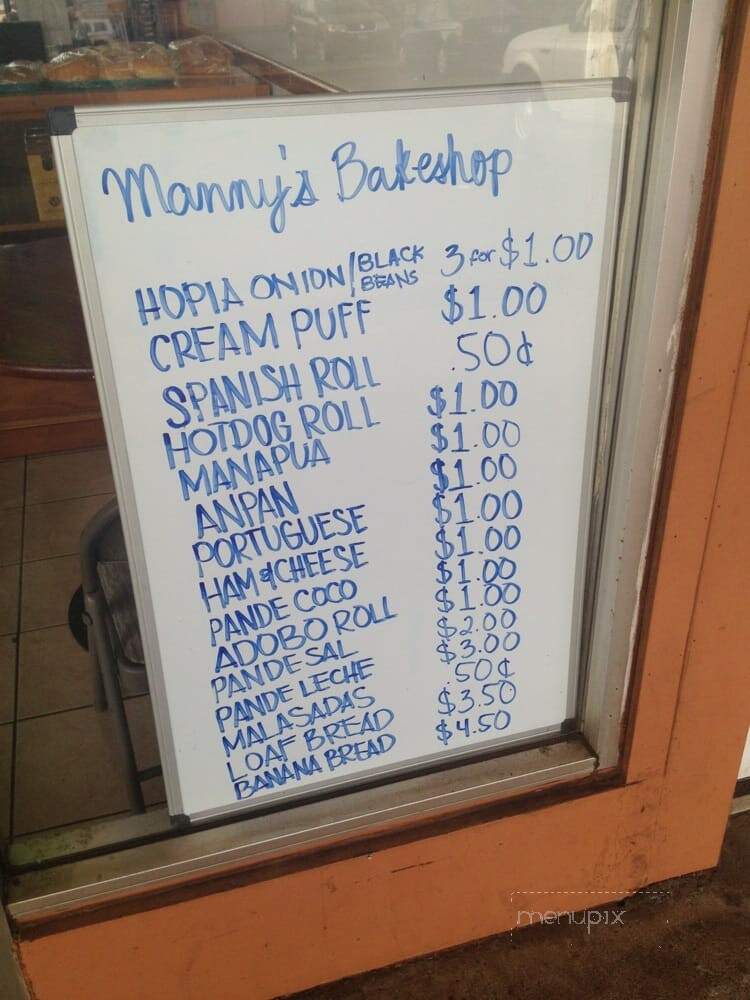 Manny's Bakeshop
HOPIA ONION/BLACK BEANS 3 for $1.00
CREAM PUFF $1.00
SPANISH ROLL .50¢
HOTDOG ROLL $1.00
MANAPUA $1.00
ANPAN $1.00
PORTUGUESE $1.00
HAM & CHEESE $1.00
PANDE COCO $1.00
ADOBO ROLL $1.00
PANDE SAL $2.00
PANDE LECHE $3.00
MALASADAS .50¢
LOAF BREAD $3.50
BANANA BREAD $4.50
menupix